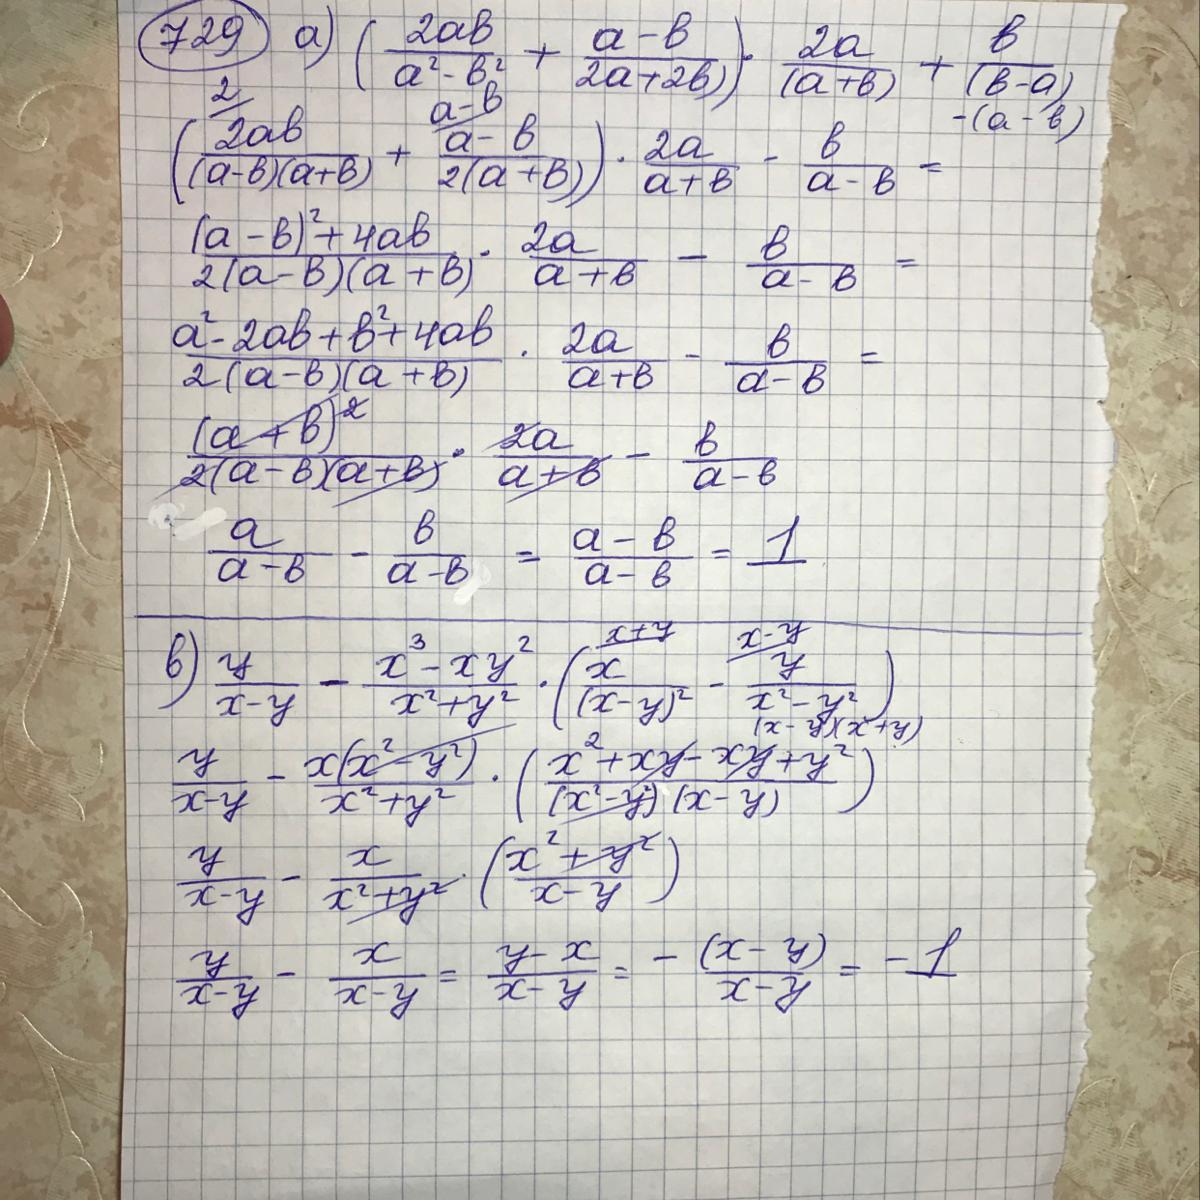 729 а) (2ab/(a²-b²) + (a-b)/(2a+2b)) · 2a/(a+b) + b/(b-a)
2 a-b -(a-b)
(2ab/((a-b)(a+b)) + (a-b)/(2(a+b))) · 2a/(a+b) - b/(a-b) =
((a-b)²+4ab)/(2(a-b)(a+b)) · 2a/(a+b) - b/(a-b) =
(a²-2ab+b²+4ab)/(2(a-b)(a+b)) · 2a/(a+b) - b/(a-b) =
(a+b)²/(2(a-b)(a+b)) · 2a/(a+b) - b/(a-b)
a/(a-b) - b/(a-b) = (a-b)/(a-b) = 1
в) y/(x-y) - (x³-xy²)/(x²+y²) · (x/(x-y)² - y/(x²-y²))
x+y x-y (x-y)(x+y)
y/(x-y) - x(x²-y²)/(x²+y²) · ((x²+xy-xy+y²)/((x²-y²)(x-y)))
y/(x-y) - x/(x²+y²) · ((x²+y²)/(x-y))
y/(x-y) - x/(x-y) = (y-x)/(x-y) = -(x-y)/(x-y) = -1